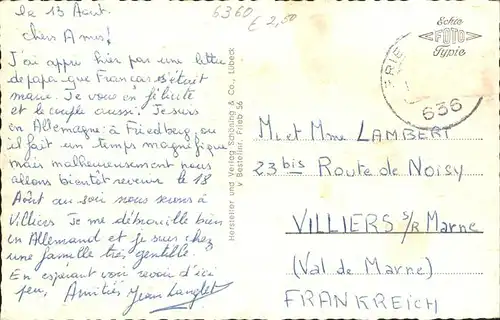 le 13 Août.
chers Amis!
J'ai appris hier par une lettre
de papa que Français s'était
marié. Je vous en félicite
et le couple aussi. Je suis
en Allemagne à Friedberg, ou
il fait un temps magnifique
mais malheureusement nous
allons bientôt revenir le 18
Août au soir nous serons à
Villiers. Je me débrouille bien
en Allemand et je suis chez
une famille très gentille.
En espérant vous revoir d'ici
peu, Amitiés Jean Langlet
6360
€ 2,50
Echte
FOTO
Typie
FRIE
636
Hersteller und Verlag Schöning & Co., Lübeck
v Bestellnr. Frieb 56
Mr et Mme LAMBERT
23 bis Route de Noisy
VILLIERS S/R Marne
(Val de Marne)
FRANKREICH